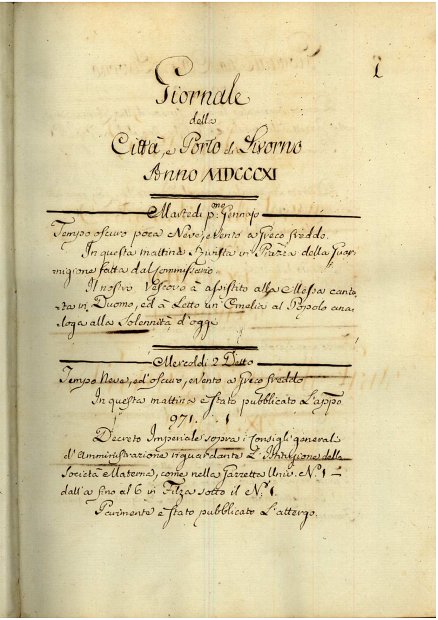 1
Giornale
della
Città, e Porto di Livorno
Anno MDCCCXI
Martedì p.mo Gennajo
Tempo oscuro poca Neve, e vento a Greco freddo.
In questa mattina Rivista in Piazza della Guar-
nigione fatta dal Commissario.
Il nostro Vescovo à assistito alla Messa canta-
ta in Duomo, ed à Letto un' Omelia al Popolo ana-
loga alla Solennità d'oggi
Mercoldì 2 Detto
Tempo Neve, ed oscuro, e vento a Greco freddo
In questa mattina e stato pubblicato L'appo
971. 1
Decreto Imperiale sopra i Consigli general
d'Amministrazione riguardante L'Istituzione della
Società Materna, come nella Gazzetta Univ. N.º 1
dall' a fino al 6 in Filza sotto il N.º 1.
Parimente e stato pubblicato L'attergo.